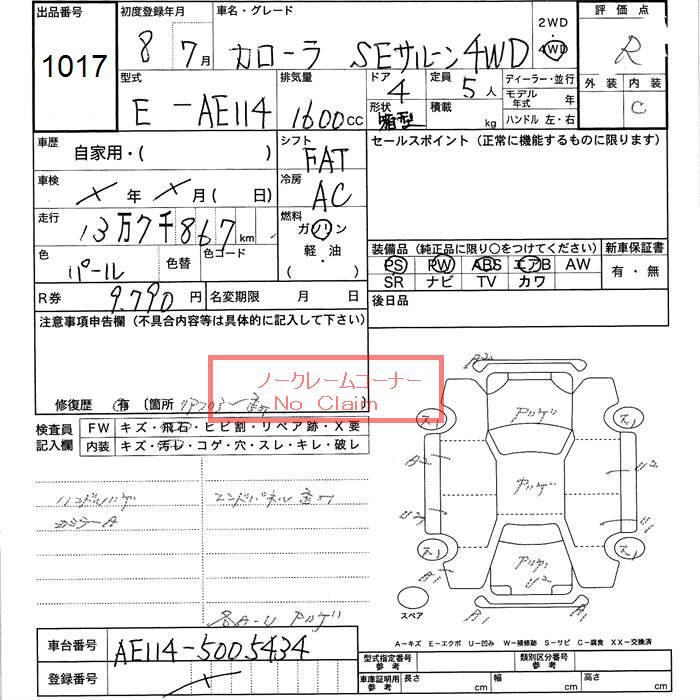 出品番号
1017
初度登録年月
8 7月
車名・グレード
カローラ SEサルーン4WD
2WD
・
4WD
評価点
R
外装 内装
C
型式
E-AE114
排気量
1600cc
ドア
4
形状
箱型
定員
5人
積載
kg
ディーラー・並行
モデル年式 年
ハンドル 左・右
車歴
自家用・( )
シフト
FAT
セールスポイント (正常に機能するものに限ります)
車検
×年×月(日)
冷房
AC
走行
13万7千867km
燃料
ガソリン
軽・油
( )
色
パール
色替
色コード
装備品 (純正品に限り○をつけてください)
PS PW ABS エアB AW
SR ナビ TV カワ
新車保証書
有・無
R券
9,790円
名変期限 月 日
後日品
注意事項申告欄 (不具合内容等は具体的に記入して下さい)
ノークレームコーナー
No Claim
修復歴 有 〔箇所
検査員
記入欄
FW キズ・飛石・ヒビ割・リペア跡・X要
内装 キズ・汚レ・コゲ・穴・スレ・キレ・破レ
A2
アリゲ
ス1 ス1
A2 U2
アリゲ
U2 U1
ス1 ス1
アリゲ
U2
B1 B1
B1
スペア
ハンドル
エンドパネル
各A-U アリゲ
A-キズ E-エクボ U-凹み W-補修跡 S-サビ C-腐食 XX-交換済
車台番号
AE114-5005434
登録番号
×
型式指定番号
参考
類別区分番号
参考
車庫証明用
参考
長さ cm
幅 cm
高さ cm